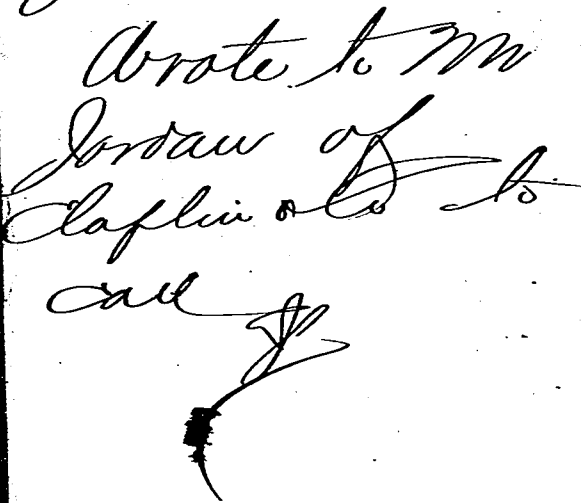 Wrote to Mr
Jordan of
Claflin & Co to
call